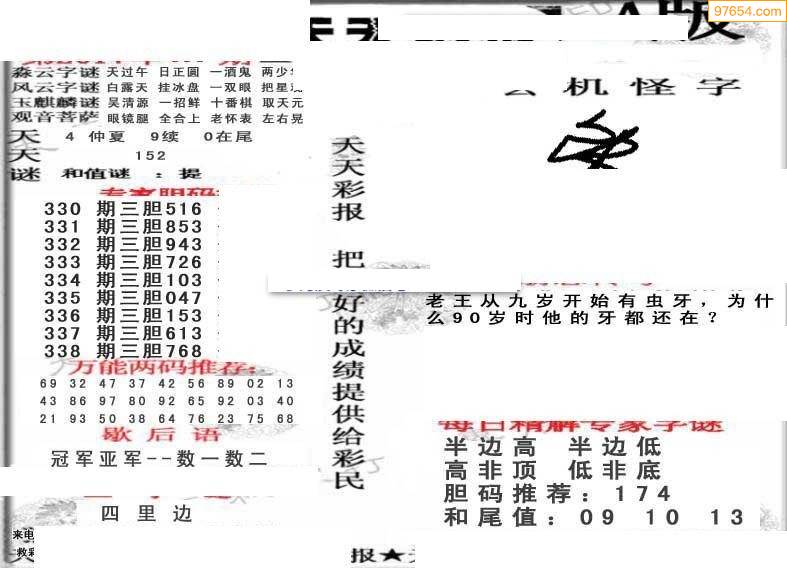 97654.com
版
森云字谜 天过午 日正圆 一酒鬼
风云字谜 白露天 挂冰盘 一双眼
玉麒麟谜 吴清源 一招鲜 十番棋 取天元
观音菩萨 眼镜腿 全合上 老怀表 左右晃
天 4 仲夏 9续 0在尾
天 152
谜 和值谜 : 提
机怪字
330 期三胆516
331 期三胆853
332 期三胆943
333 期三胆726
334 期三胆103
335 期三胆047
336 期三胆153
337 期三胆613
338 期三胆768
万能两码推荐:
69 32 47 37 42 56 89 02 13
43 86 97 80 92 65 92 03 40
21 93 50 38 64 76 23 75 68
歇后语
冠军亚军--数一数二
四里边
天天彩报 把
好的成绩提供给彩民
老王从九岁开始有虫牙，为什
么90岁时他的牙都还在？
每日精解专家字谜
半边高 半边低
高非顶 低非底
胆码推荐：174
和尾值：09 10 13
来电
报★